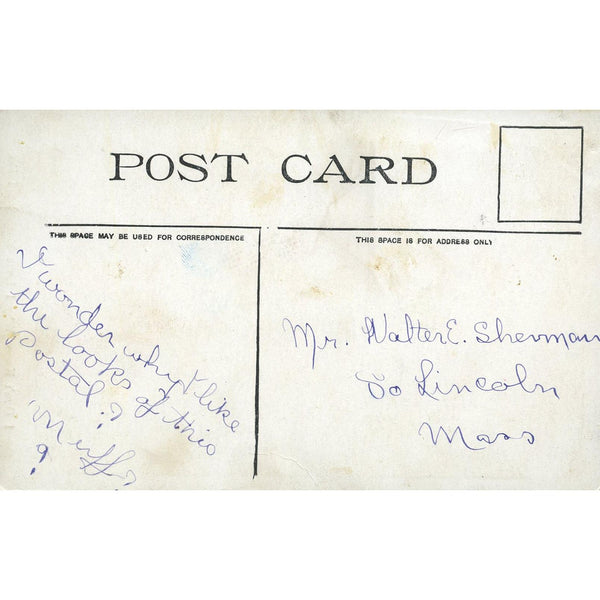 POST CARD
THIS SPACE MAY BE USED FOR CORRESPONDENCE
THIS SPACE IS FOR ADDRESS ONLY
I wonder why I like
the looks of this
Postal?
"Muff"?
?
Mr. Walter E. Sherman
So Lincoln
Mass